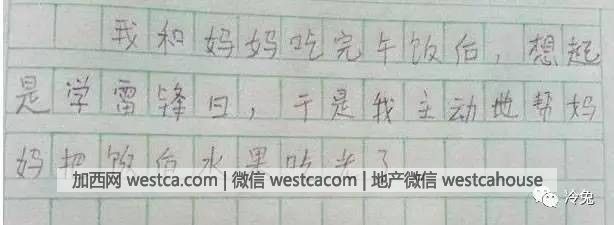 我和妈妈吃完午饭后，想起
是学雷锋日，于是我主动地帮妈
妈把饭后水果吃光了
加西网 westca.com | 微信 westcacom | 地产微信 westcahouse
冷兔